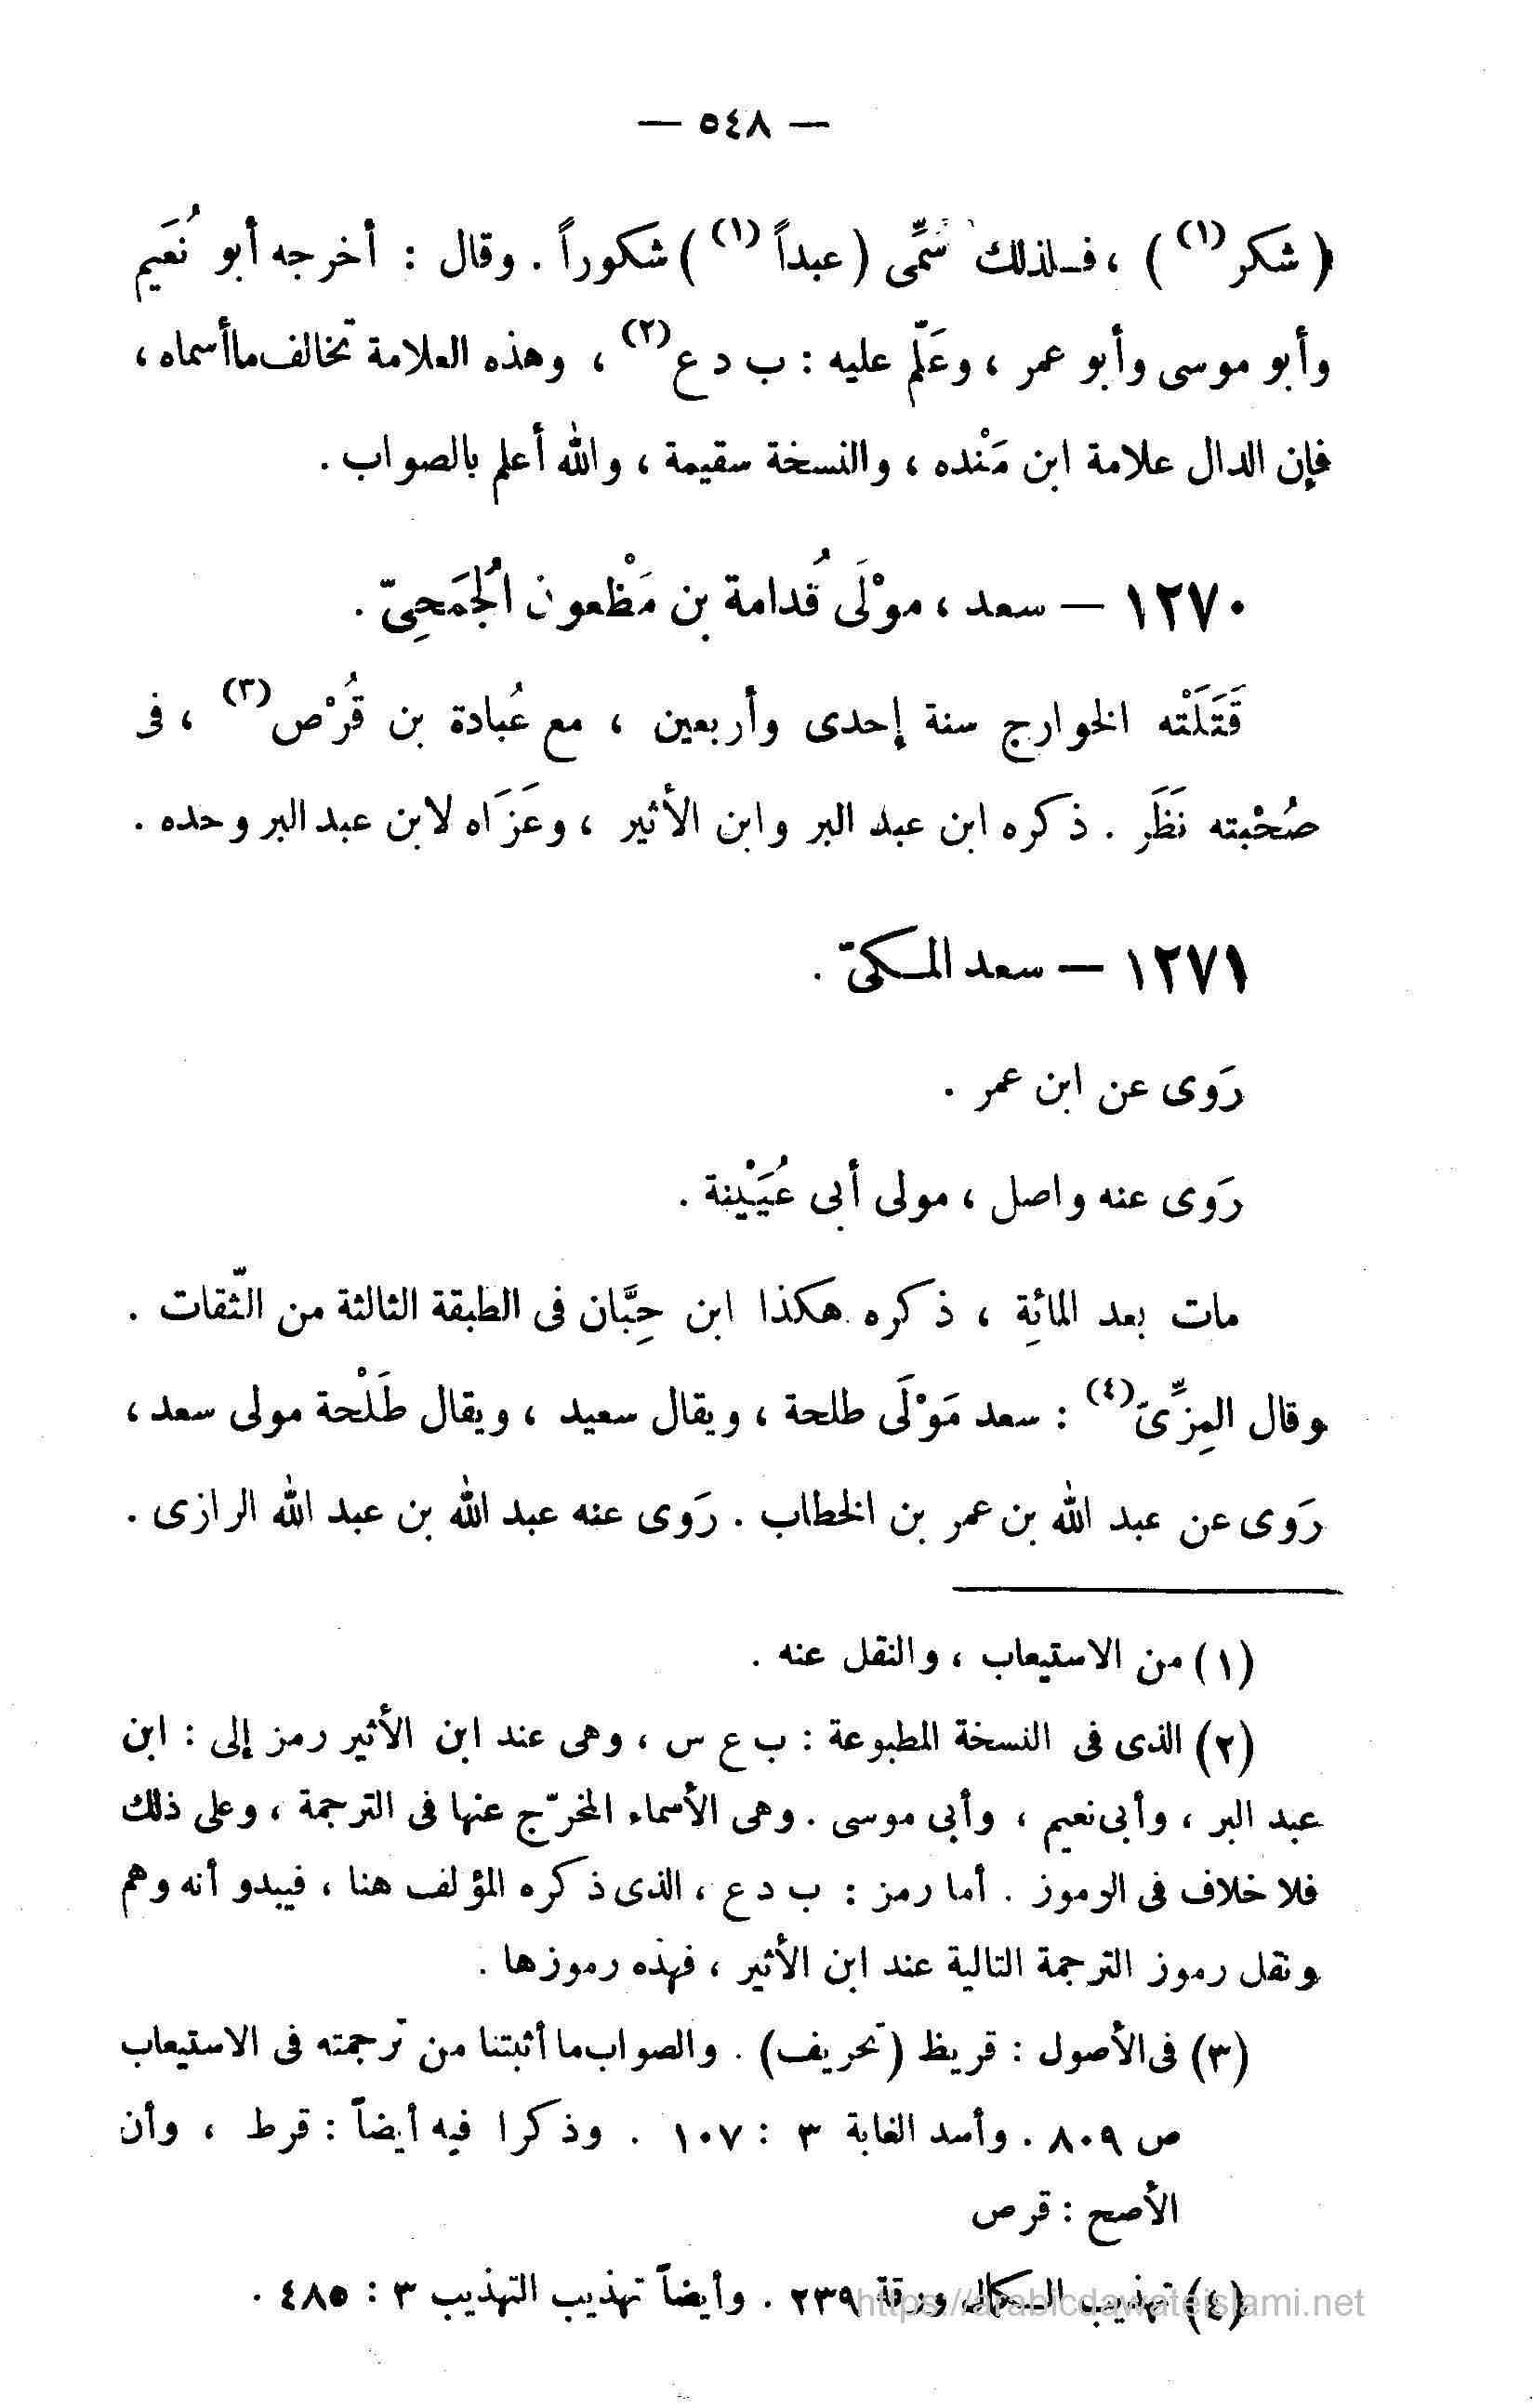 — ٥٤٨ —
( شكر (١) ) ، فـلذلك سُمِّى ( عبداً (١) ) شكوراً . وقال : أخرجه أبو نُعَيم
وأبو موسى وأبو عمر ، وعَلّم عليه : ب د ع (٢) ، وهذه العلامة تخالف ما أسماه ،
فإن الدال علامة ابن مَنْده ، والنسخة سقيمة ، والله أعلم بالصواب .
١٢٧٠ — سعد ، موْلَى قُدامة بن مَظْعون الْجُمَحِىّ .
قَتَلَتْه الخوارج سنة إحدى وأربعين ، مع عُبادة بن قُرْص (٣) ، فى
صُحْبته نَظَر . ذكره ابن عبد البر وابن الأثير ، وعَزَاه لابن عبد البر وحده .
١٢٧١ — سعد المـكىّ .
رَوى عن ابن عمر .
رَوى عنه واصل ، مولى أبى عُيَيْنة .
مات بعد المائِة ، ذكره هكذا ابن حِبَّان فى الطبقة الثالثة من الثّقات .
وقال المِزِّىّ (٤) : سعد مَوْلَى طلحة ، ويقال سعيد ، ويقال طَلْحة مولى سعد ،
رَوى عن عبد الله بن عمر بن الخطاب . رَوى عنه عبد الله بن عبد الله الرازى .
(١) من الاستيعاب ، والنقل عنه .
(٢) الذى فى النسخة المطبوعة : ب ع س ، وهى عند ابن الأثير رمز إلى : ابن
عبد البر ، وأبى نعيم ، وأبى موسى . وهى الأسماء المخرّج عنها فى الترجمة ، وعلى ذلك
فلا خلاف فى الرموز . أما رمز : ب د ع ، الذى ذكره المؤلف هنا ، فيبدو أنه وهم
ونقل رموز الترجمة التالية عند ابن الأثير ، فهذه رموزها .
(٣) فى الأصول : قريظ (تحريف) . والصواب ما أثبتنا من ترجمته فى الاستيعاب
ص ٨٠٩ . وأسد الغابة ٣ : ١٠٧ . وذكرا فيه أيضاً : قرط ، وأن
الأصح : قرص
(٤) تهذيب الـكمال ورقة ٢٣٩ . وأيضاً تهذيب التهذيب ٣ : ٤٨٥ .
https://arabicdawateislami.net